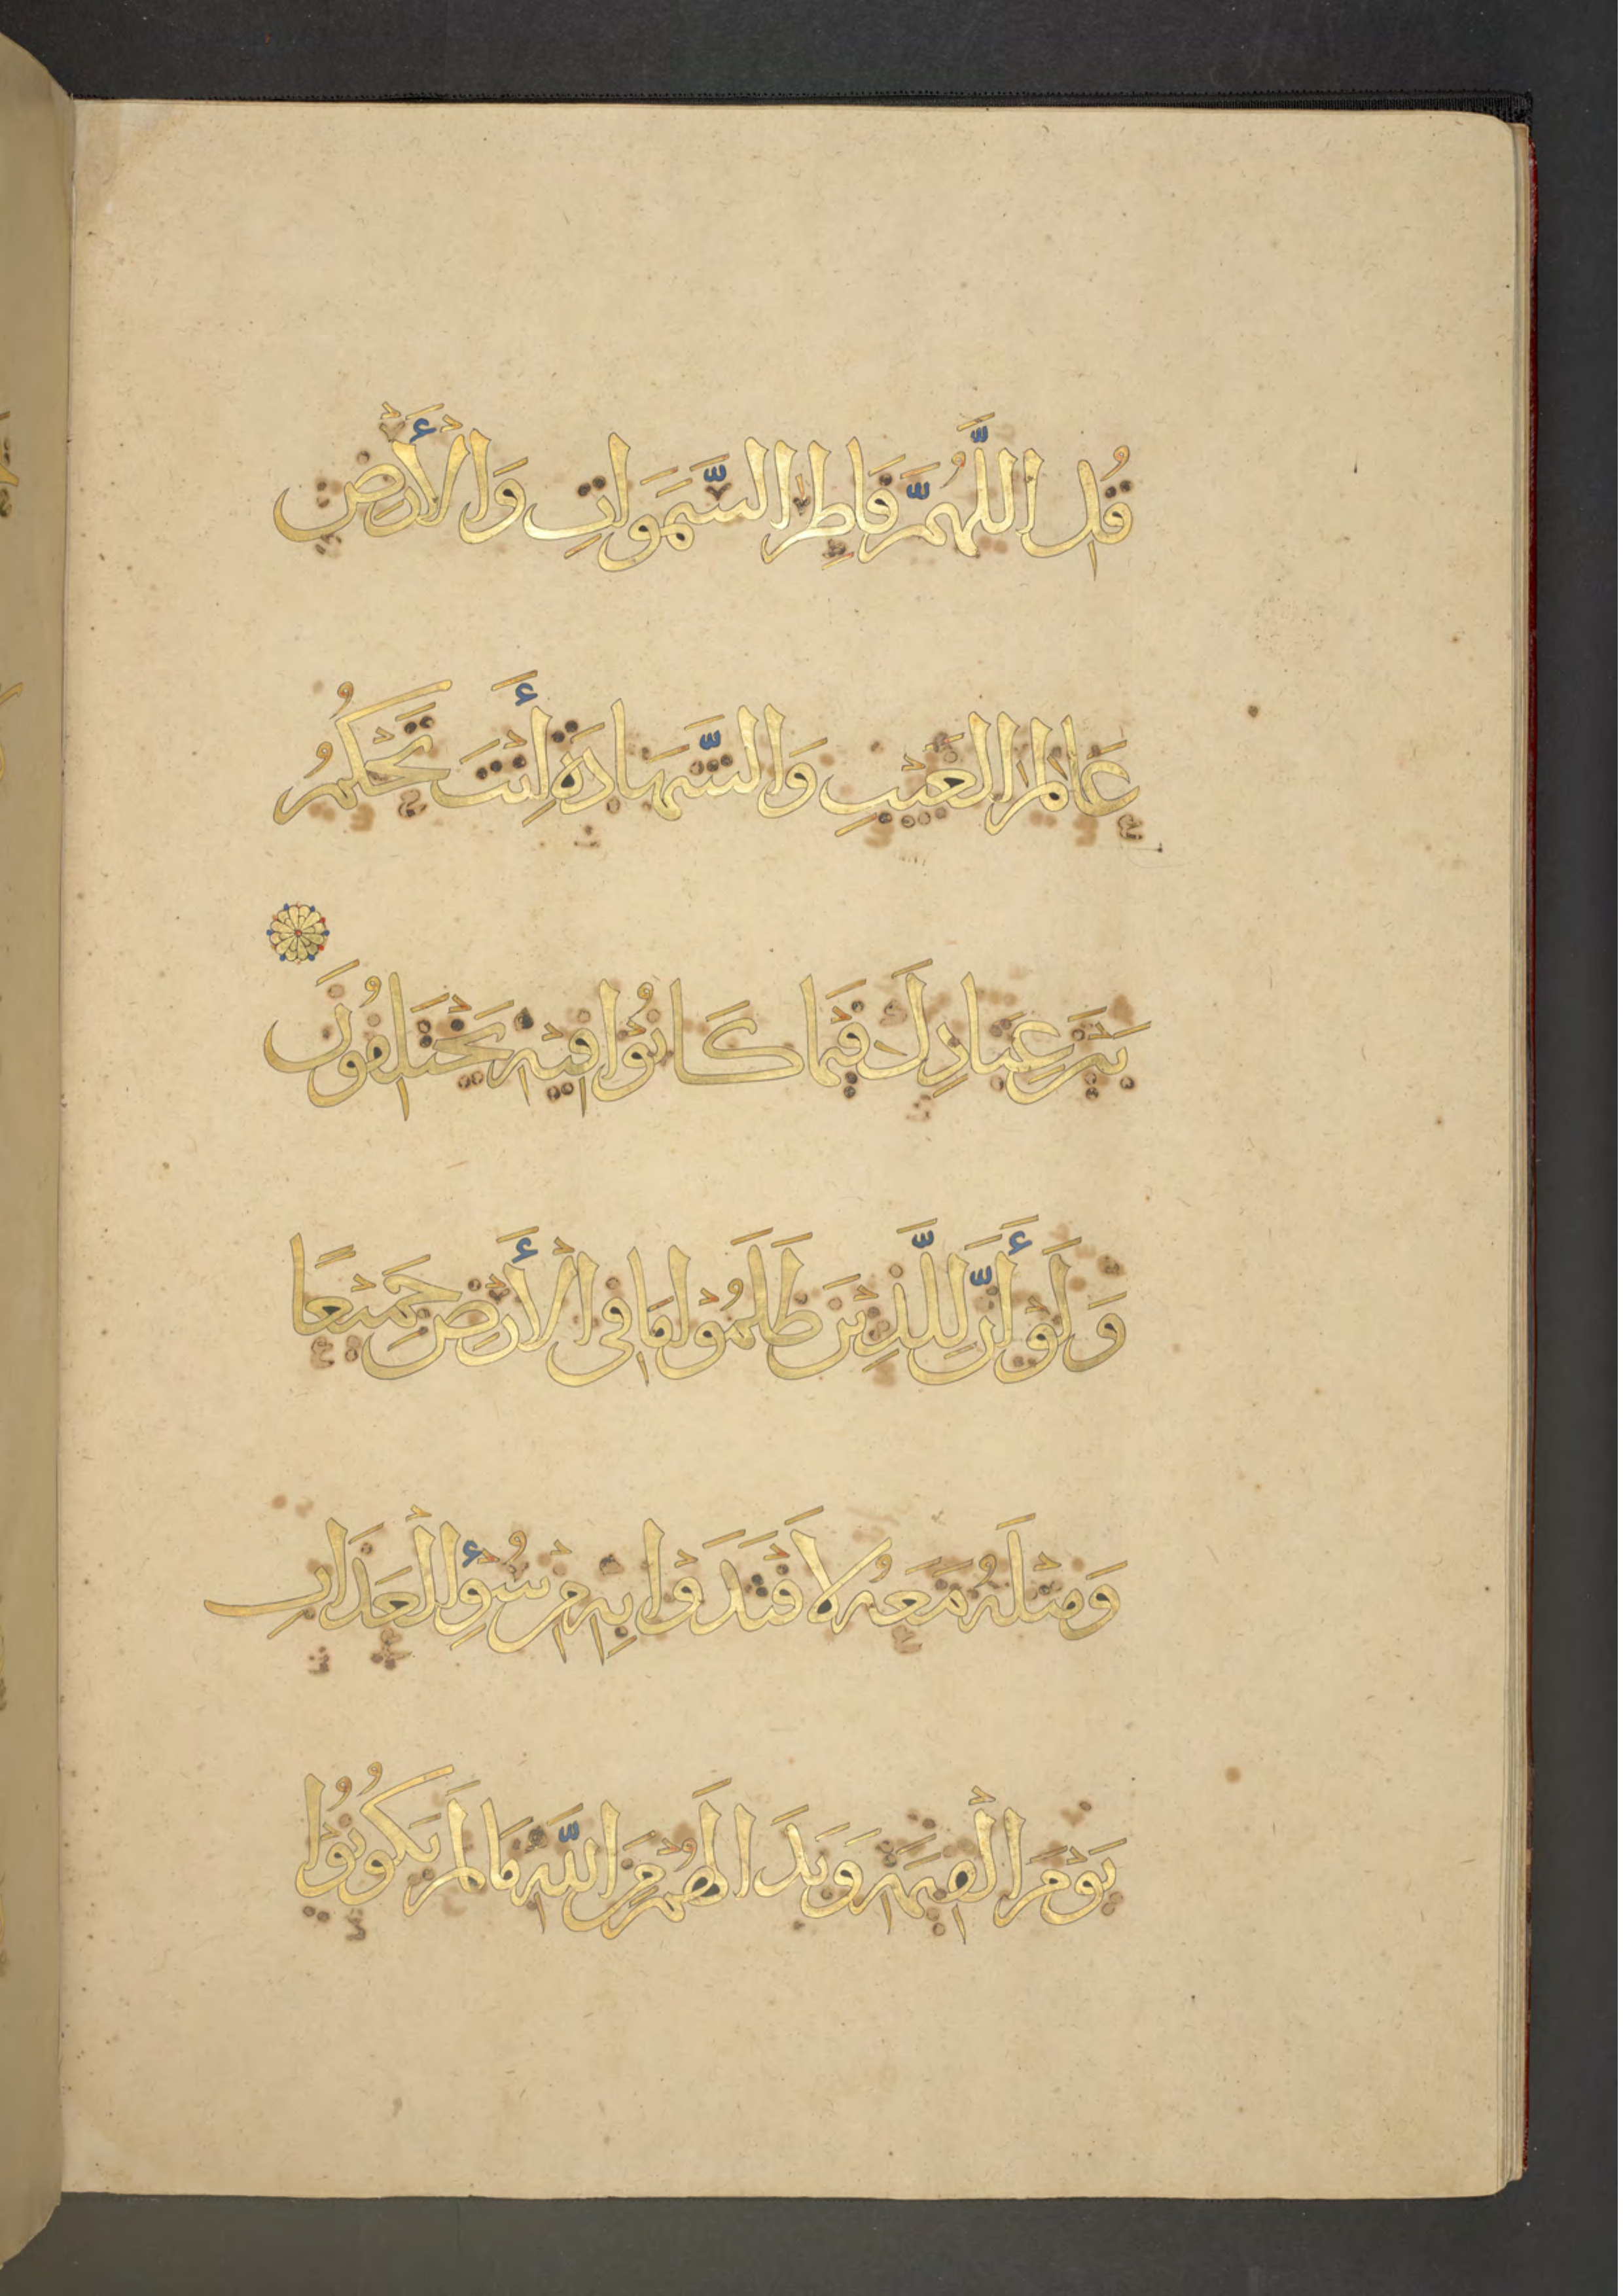 قُلِ اللَّهُمَّ فَاطِرَ السَّمَوَاتِ وَالْأَرْضِ
عَالِمَ الْغَيْبِ وَالشَّهَادَةِ أَنْتَ تَحْكُمُ
بَيْنَ عِبَادِكَ فِيْمَا كَانُوْا فِيْهِ يَخْتَلِفُونَ
وَلَوْ أَنَّ لِلَّذِيْنَ ظَلَمُوْا مَا فِى الْأَرْضِ جَمِيْعًا
وَمِثْلَهُ مَعَهُ لَافْتَدَوْا بِهِ مِنْ سُوْءِ الْعَذَابِ
يَوْمَ الْقِيَمَةِ وَبَدَا لَهُمْ مِنَ اللَّهِ مَا لَمْ يَكُونُوْا